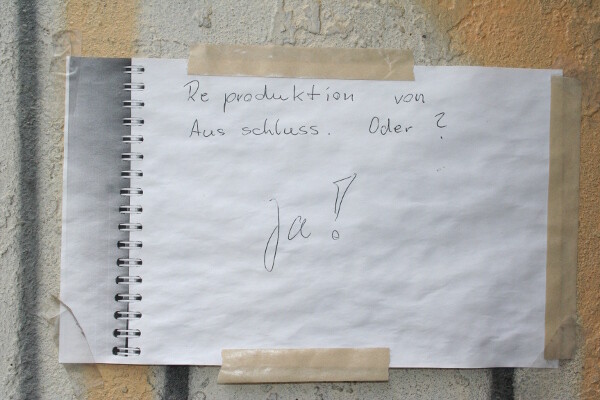 Re produktion von
Aus schluss. Oder?
ja!